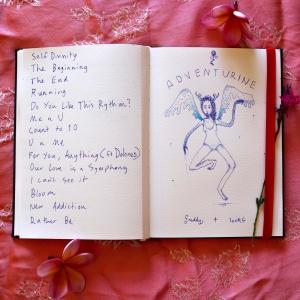 Self Divinity
The Beginning
The End
Running
Do You Like This Rythm?
Me n U
Count to 10
U n Me
For You, Anything (ft Dolores)
Our Love is a Symphony
I can't see it
Bloom
New Addiction
Rather Be
ADVENTURINE
+